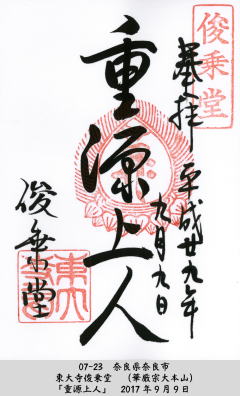 俊乗堂
奉拝
平成廿九年
九月九日
重源上人
俊乗堂
07-23 奈良県奈良市
東大寺俊乗堂 （華厳宗大本山）
「重源上人」 2017年9月9日